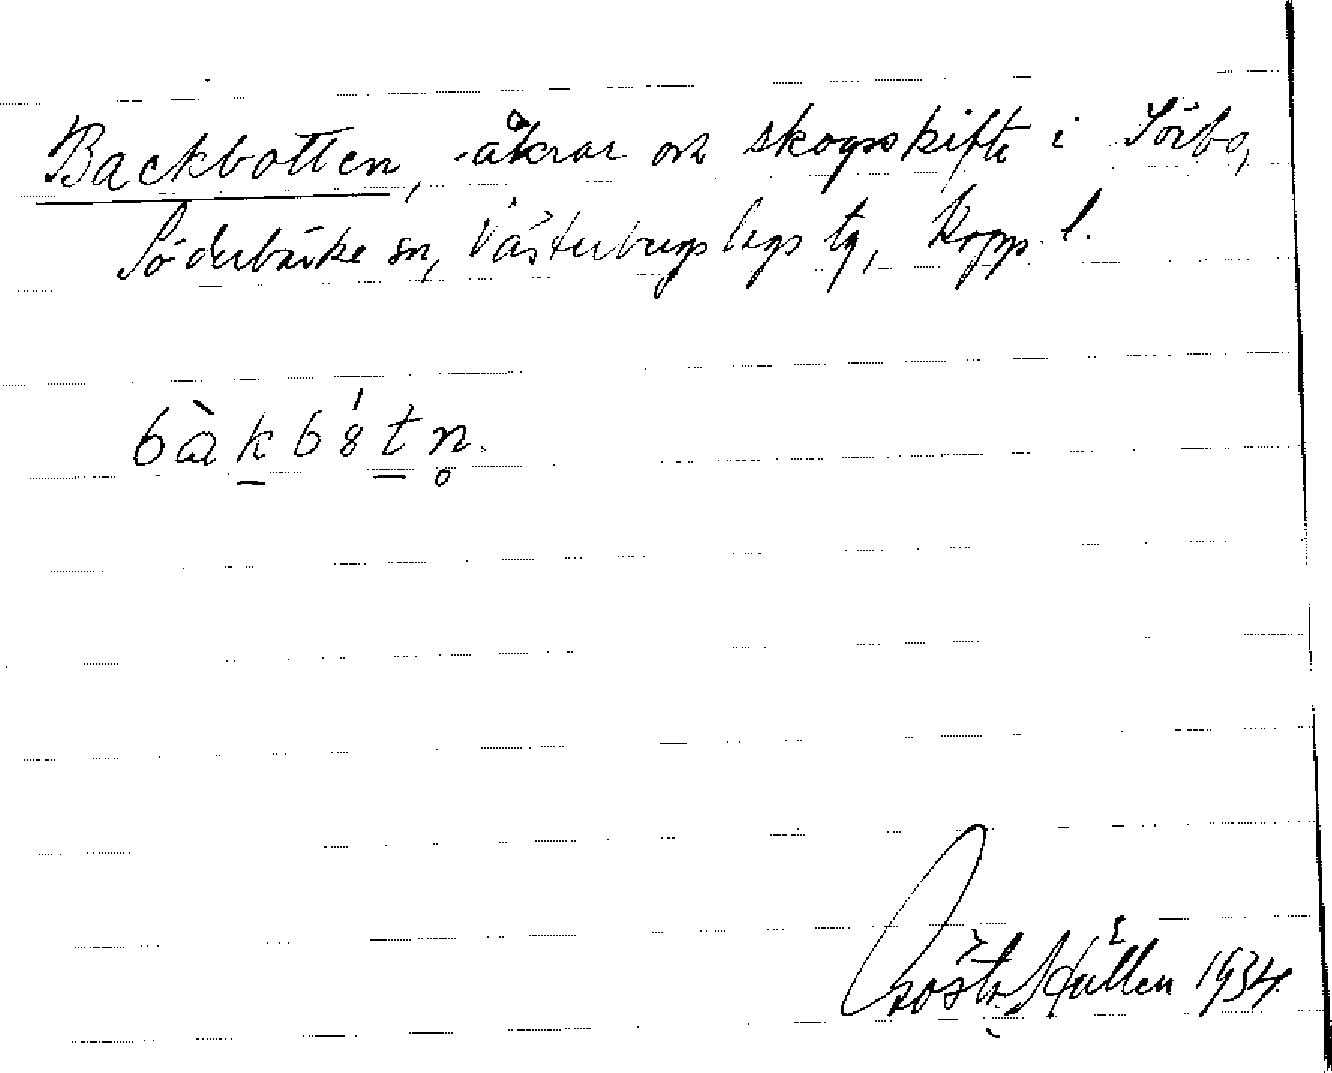 Backbotten, åkrar och skogsskifte i Sörbo,
Söderbärke sn, Västerbergslags tg, Kopp. l.
bàkbótn.
Gösta 1934.